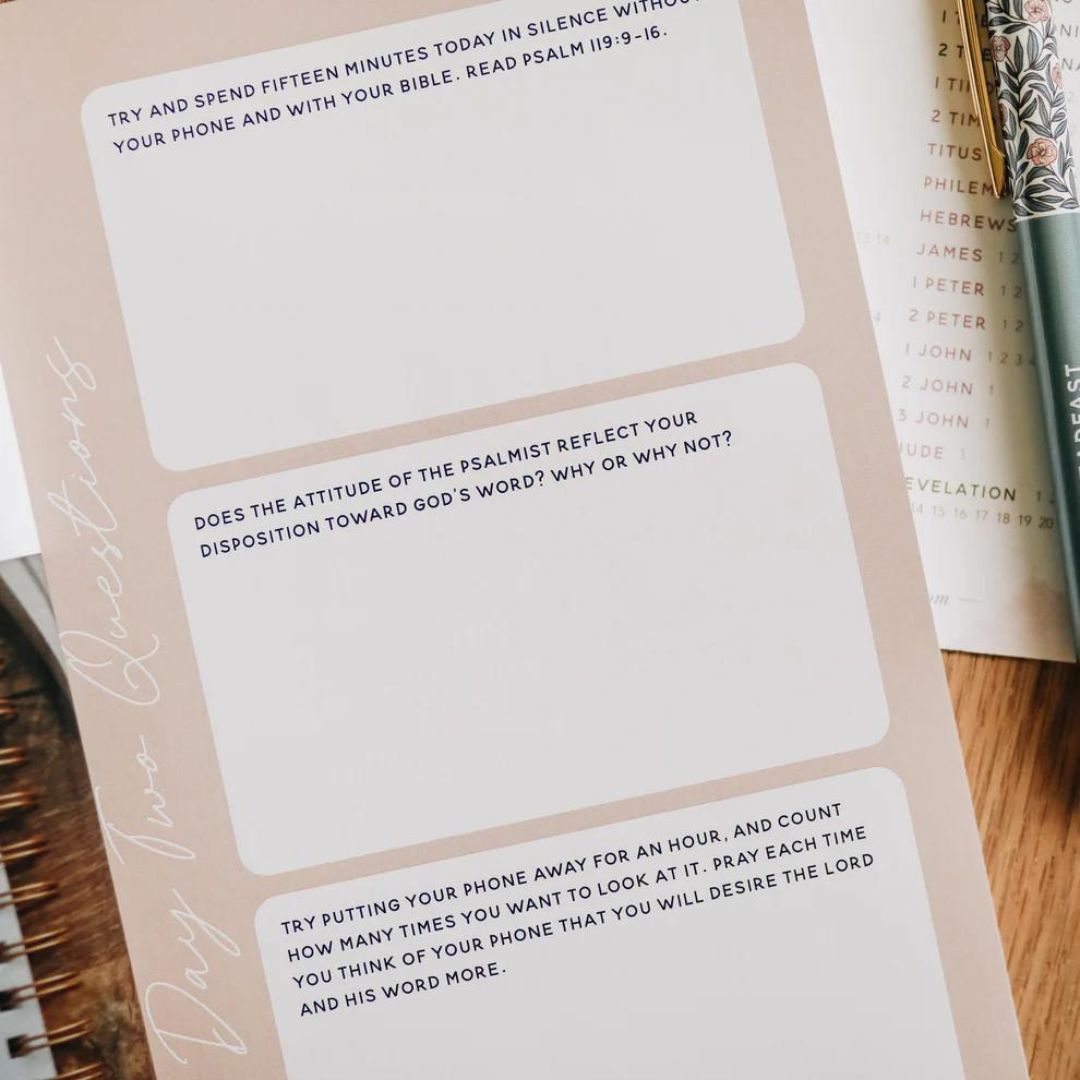 TRY AND SPEND FIFTEEN MINUTES TODAY IN SILENCE WITHOUT
YOUR PHONE AND WITH YOUR BIBLE. READ PSALM 119:9-16.
DOES THE ATTITUDE OF THE PSALMIST REFLECT YOUR
DISPOSITION TOWARD GOD'S WORD? WHY OR WHY NOT?
TRY PUTTING YOUR PHONE AWAY FOR AN HOUR, AND COUNT
HOW MANY TIMES YOU WANT TO LOOK AT IT. PRAY EACH TIME
YOU THINK OF YOUR PHONE THAT YOU WILL DESIRE THE LORD
AND HIS WORD MORE.
Day Two Questions
2 TIM
TITUS
PHILEM
HEBREWS
JAMES 1 2
1 PETER 1 2
2 PETER 1 2
1 JOHN 1 2 3 4
2 JOHN 1
3 JOHN 1
JUDE 1
EVELATION 1 2
14 15 16 17 18 19 20